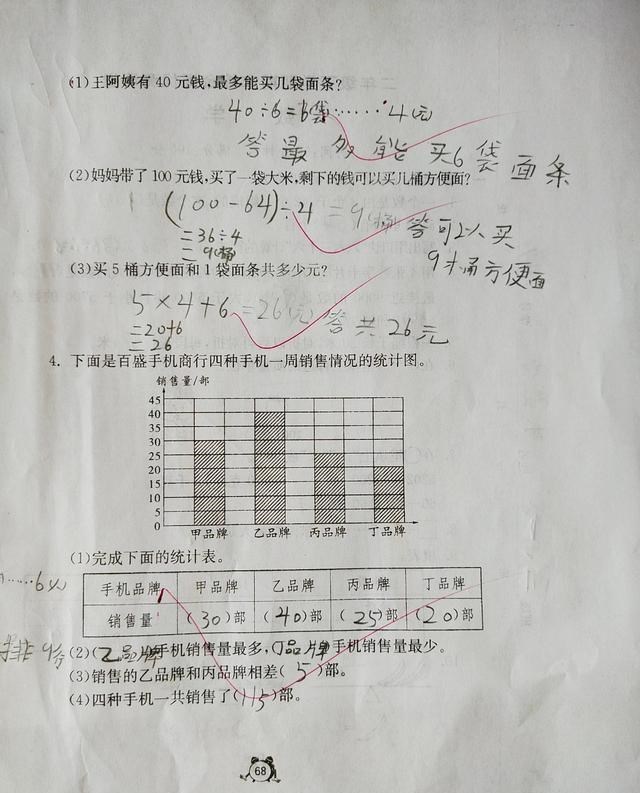 (1)王阿姨有 40 元钱,最多能买几袋面条?
40÷6=6袋……4(元)
答最多能买6袋面条
(2)妈妈带了 100 元钱,买了一袋大米,剩下的钱可以买几桶方便面?
(100-64)÷4=9(桶)
=36÷4
=9(桶)
答可以买
9桶方便面
(3)买 5 桶方便面和 1 袋面条共多少元?
5×4+6=26(元)
=20+6
=26
答共26元
4. 下面是百盛手机商行四种手机一周销售情况的统计图。
销售量/部
45
40
35
30
25
20
15
10
5
0
甲品牌 乙品牌 丙品牌 丁品牌
(1)完成下面的统计表。
手机品牌 甲品牌 乙品牌 丙品牌 丁品牌
销售量 (30)部 (40)部 (25)部 (20)部
(2)(乙品牌)手机销售量最多,丁品牌手机销售量最少。
(3)销售的乙品牌和丙品牌相差(5)部。
(4)四种手机一共销售了(115)部。
68